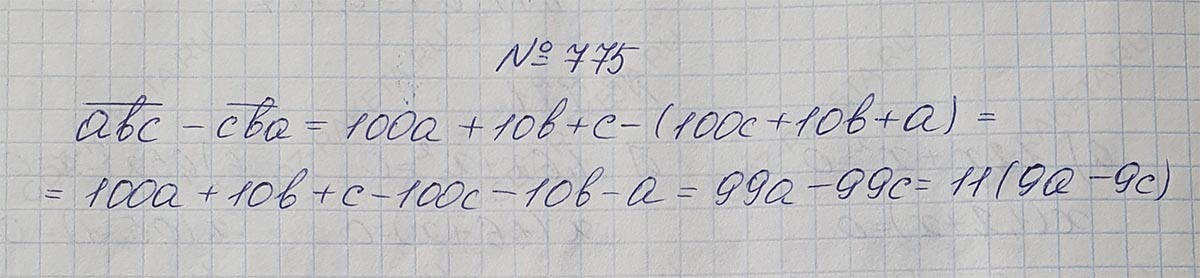 № 775
a̅b̅c̅ - c̅b̅a̅ = 100a + 10b + c - (100c + 10b + a) =
= 100a + 10b + c - 100c - 10b - a = 99a - 99c = 11(9a - 9c)